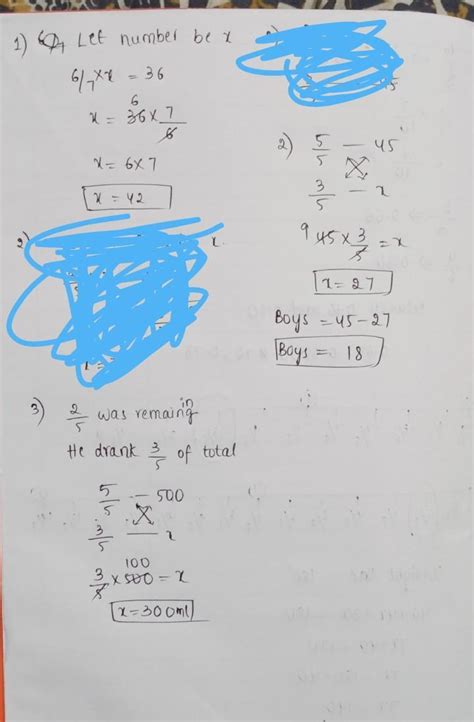 1) 6/7 Let number be x
6/7 × x = 36
6
x = 36 × 7/6
x = 6 × 7
x = 42
2)
x.
2) 5/5 — 45
3/5 — x
9 45 × 3/5 = x
x = 27
Boys = 45 - 27
Boys = 18
3) 2/5 was remainin
He drank 3/5 of total
5/5 — 500
3/5 — x
100
3/5 × 500 = x
x = 300ml